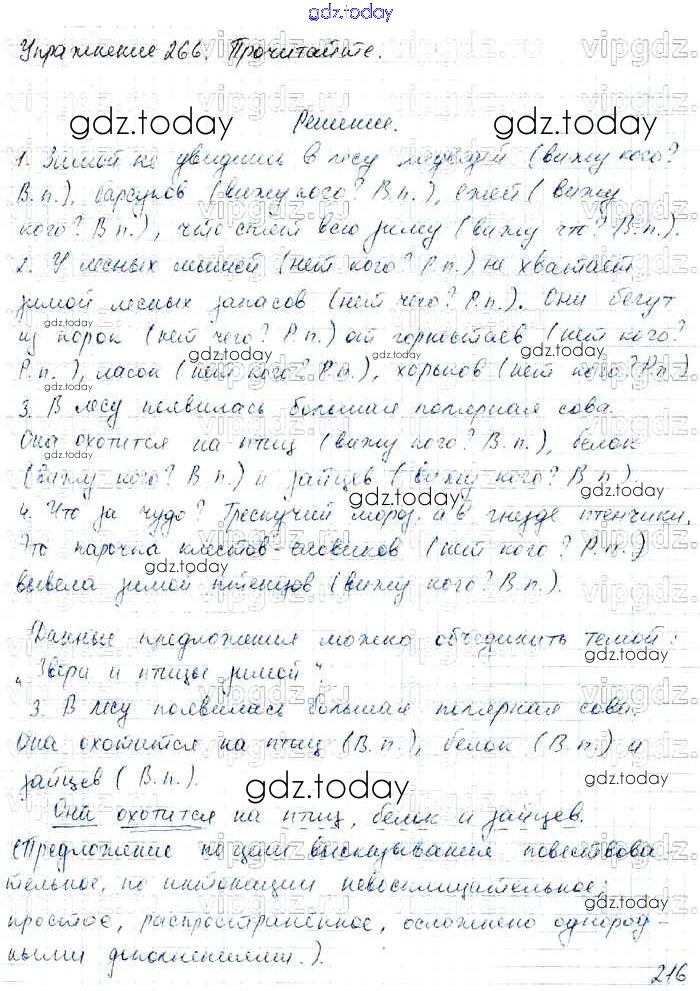 gdz.today
Упражнение 266. Прочитайте.
Решение.
1. Зимой не увидишь в лесу медведей (вижу кого?
В.п.), барсуков (вижу кого? В.п.), ежей (вижу
кого? В.п.), что спят всю зиму (вижу что? В.п.).
2. У лесных мышей (нет кого? Р.п.) не хватает
зимой лесных запасов (нет чего? Р.п.). Они бегут
из норок (нет чего? Р.п.) от горностаев (нет кого?
Р.п.), ласок (нет кого? Р.п.), хорьков (нет кого? Р.п.)
3. В лесу появилась большая полярная сова.
Она охотится на птиц (вижу кого? В.п.), белок
(вижу кого? В.п.) и зайцев (вижу кого? В.п.)
4. Что за чудо? Трескучий мороз, а в гнезде птенчики.
Это парочка клестов-еловиков (нет кого? Р.п.)
вывела зимой птенцов (вижу кого? В.п.).
Данные предложения можно объединить темой:
„Звери и птицы зимой".
3. В лесу появилась большая полярная сова.
Она охотится на птиц (В.п.), белок (В.п.) и
зайцев (В.п.).
Она охотится на птиц, белок и зайцев.
(Предложение по цели высказывания повествова
тельное, по интонации невосклицательное,
простое, распространённое, осложнено однород-
ными дополнениями.).
216